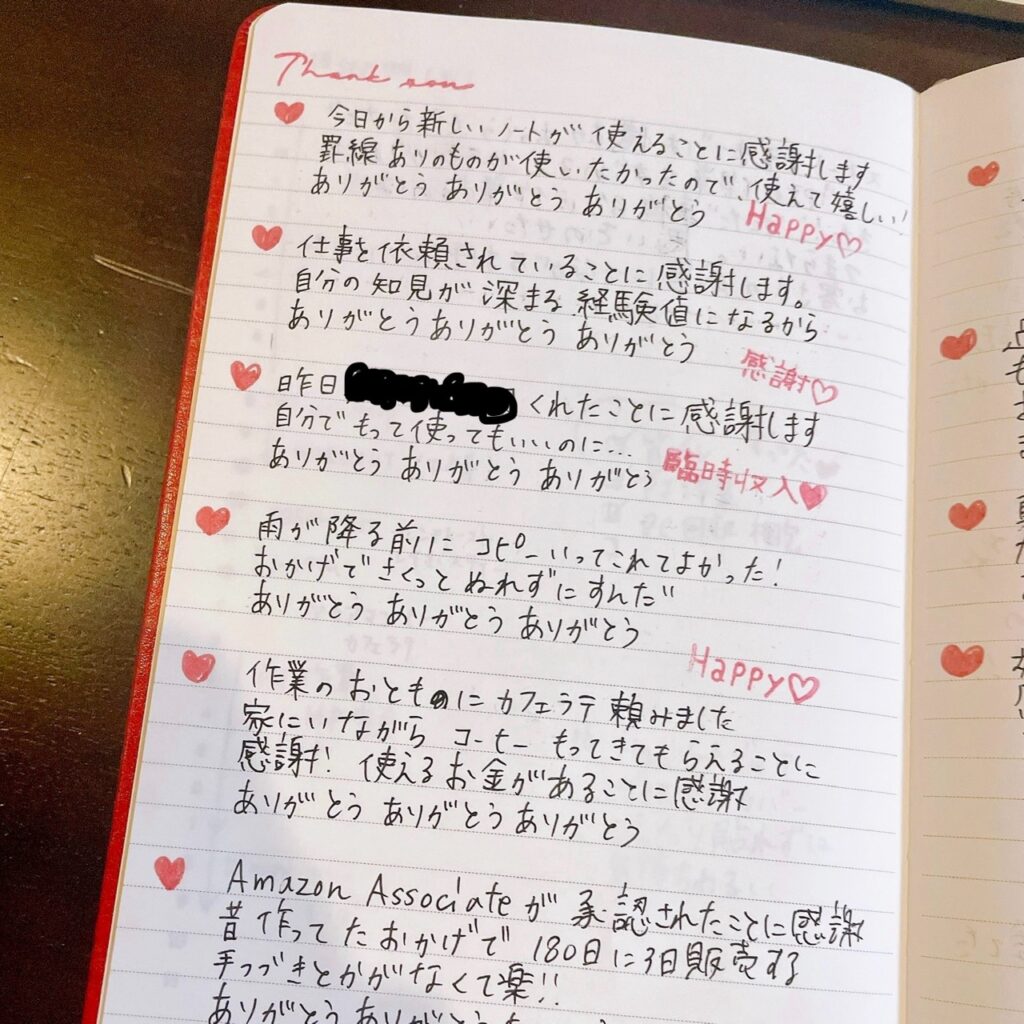 Thank you
今日から新しいノートが使えることに感謝します
罫線ありのものが使いたかったので、使えて嬉しい!
ありがとう ありがとう ありがとう
Happy♡
仕事を依頼されていることに感謝します。
自分の知見が深まる経験値になるから
ありがとうありがとう ありがとう
感謝♡
昨日 くれたことに感謝します
自分でもって使ってもいいのに...
ありがとう ありがとう ありがとう
臨時収入♥
雨が降る前に コピーいってこれてよかった!
おかげでさくっと ぬれずにすんだ
ありがとう ありがとう ありがとう
Happy♡
作業のおともにカフェラテ頼みました
家にいながら コーヒー もってきてもらえることに
感謝! 使えるお金があることに感謝
ありがとう ありがとう ありがとう
Amazon Associateが 承認されたことに感謝
昔作ってたおかげで 180日に3日販売する
手つづきとかがなくて楽!!
ありがとう ありがとう